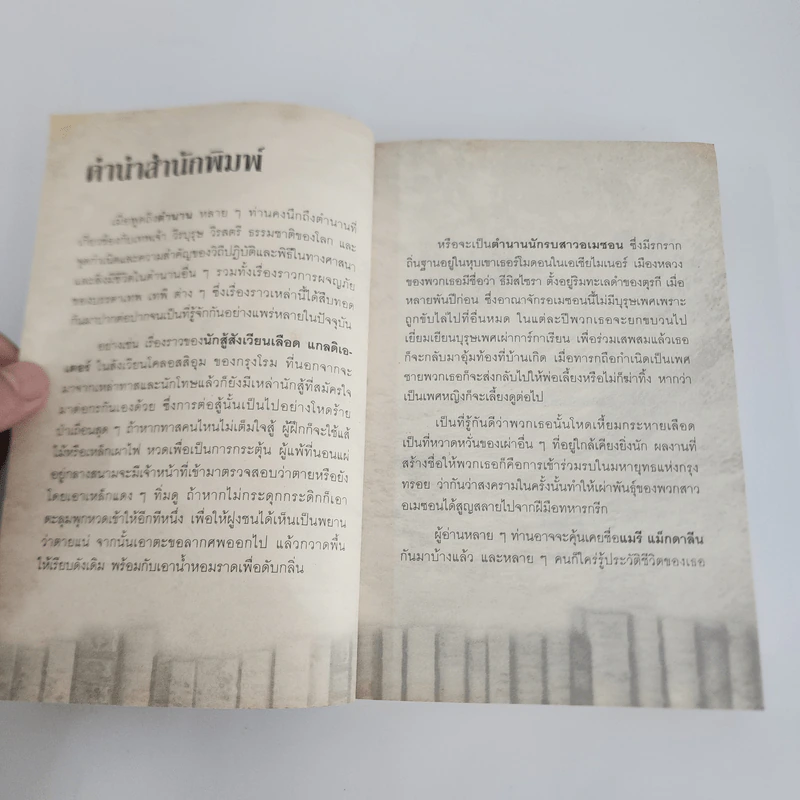 คำนำสำนักพิมพ์
เมื่อพูดถึงตำนาน หลาย ๆ ท่านคงนึกถึงตำนานที่
เกี่ยวข้องกับเทพเจ้า วีรบุรุษ วีรสตรี ธรรมชาติของโลก และ
จุดกำเนิดและความสำคัญของวิถีปฏิบัติและพิธีในทางศาสนา
และยังมีชีวิตในตำนานอื่น ๆ รวมทั้งเรื่องราวการผจญภัย
ของบรรดาเทพ เทพี ต่าง ๆ ซึ่งเรื่องราวเหล่านี้ได้สืบทอด
กันมาปากต่อปากจนเป็นที่รู้จักกันอย่างแพร่หลายในปัจจุบัน
อย่างเช่น เรื่องราวของนักสู้สังเวียนเลือด แกลดิเอ-
เตอร์ ในสังเวียนโคลอสสิอุม ของกรุงโรม ที่นอกจากจะ
มาจากเหล่าทาสและนักโทษแล้วก็ยังมีเหล่านักสู้ที่สมัครใจ
มาต่อกรกันเองด้วย ซึ่งการต่อสู้นั้นเป็นไปอย่างโหดร้าย
ป่าเถื่อนสุด ๆ ถ้าหากทาสคนไหนไม่เต็มใจสู้ ผู้ฝึกก็จะใช้แส้
ไม้หรือเหล็กเผาไฟ หวดเพื่อเป็นการกระตุ้น ผู้แพ้ที่นอนแผ่
อยู่กลางสนามจะมีเจ้าหน้าที่เข้ามาตรวจสอบว่าตายหรือยัง
โดยเอาเหล็กแดง ๆ ทิ่มดู ถ้าหากไม่กระดุกกระดิกก็เอา
ตะลุมพุกหวดเข้าให้อีกทีหนึ่ง เพื่อให้ฝูงชนได้เห็นเป็นพยาน
ว่าตายแน่ จากนั้นเอาตะขอลากศพออกไป แล้วกวาดพื้น
ให้เรียบดังเดิม พร้อมกับเอาน้ำหอมราดเพื่อดับกลิ่น
หรือจะเป็นตำนานนักรบสาวอเมซอน ซึ่งมีรกราก
ถิ่นฐานอยู่ในหุบเขาเธอร์โมดอนในเอเซียไมเนอร์ เมืองหลวง
ของพวกเธอมีชื่อว่า ธีมิสไซรา ตั้งอยู่ริมทะเลดำของตุรกี เมื่อ
หลายพันปีก่อน ซึ่งอาณาจักรอเมซอนนี้ไม่มีบุรุษเพศเพราะ
ถูกขับไล่ไปที่อื่นหมด ในแต่ละปีพวกเธอจะยกขบวนไป
เยี่ยมเยียนบุรุษเพศเผ่าการ์กาเรียน เพื่อร่วมเสพสมแล้วเธอ
ก็จะกลับมาอุ้มท้องที่บ้านเกิด เมื่อทารกถือกำเนิดเป็นเพศ
ชายพวกเธอก็จะส่งกลับไปให้พ่อเลี้ยงหรือไม่ก็ฆ่าทิ้ง หากว่า
เป็นเพศหญิงก็จะเลี้ยงดูต่อไป
เป็นที่รู้กันดีว่าพวกเธอนั้นโหดเหี้ยมกระหายเลือด
เป็นที่หวาดหวั่นของเผ่าอื่น ๆ ที่อยู่ใกล้เคียงยิ่งนัก ผลงานที่
สร้างชื่อให้พวกเธอก็คือการเข้าร่วมรบในมหายุทธแห่งกรุง
ทรอย ว่ากันว่าสงครามในครั้งนั้นทำให้เผ่าพันธุ์ของพวกสาว
อเมซอนได้สูญสลายไปจากฝีมือทหารกรีก
ผู้อ่านหลาย ๆ ท่านอาจจะคุ้นเคยชื่อแมรี แม็กดาลีน
กันมาบ้างแล้ว และหลาย ๆ คนก็ใคร่รู้ประวัติชีวิตของเธอ